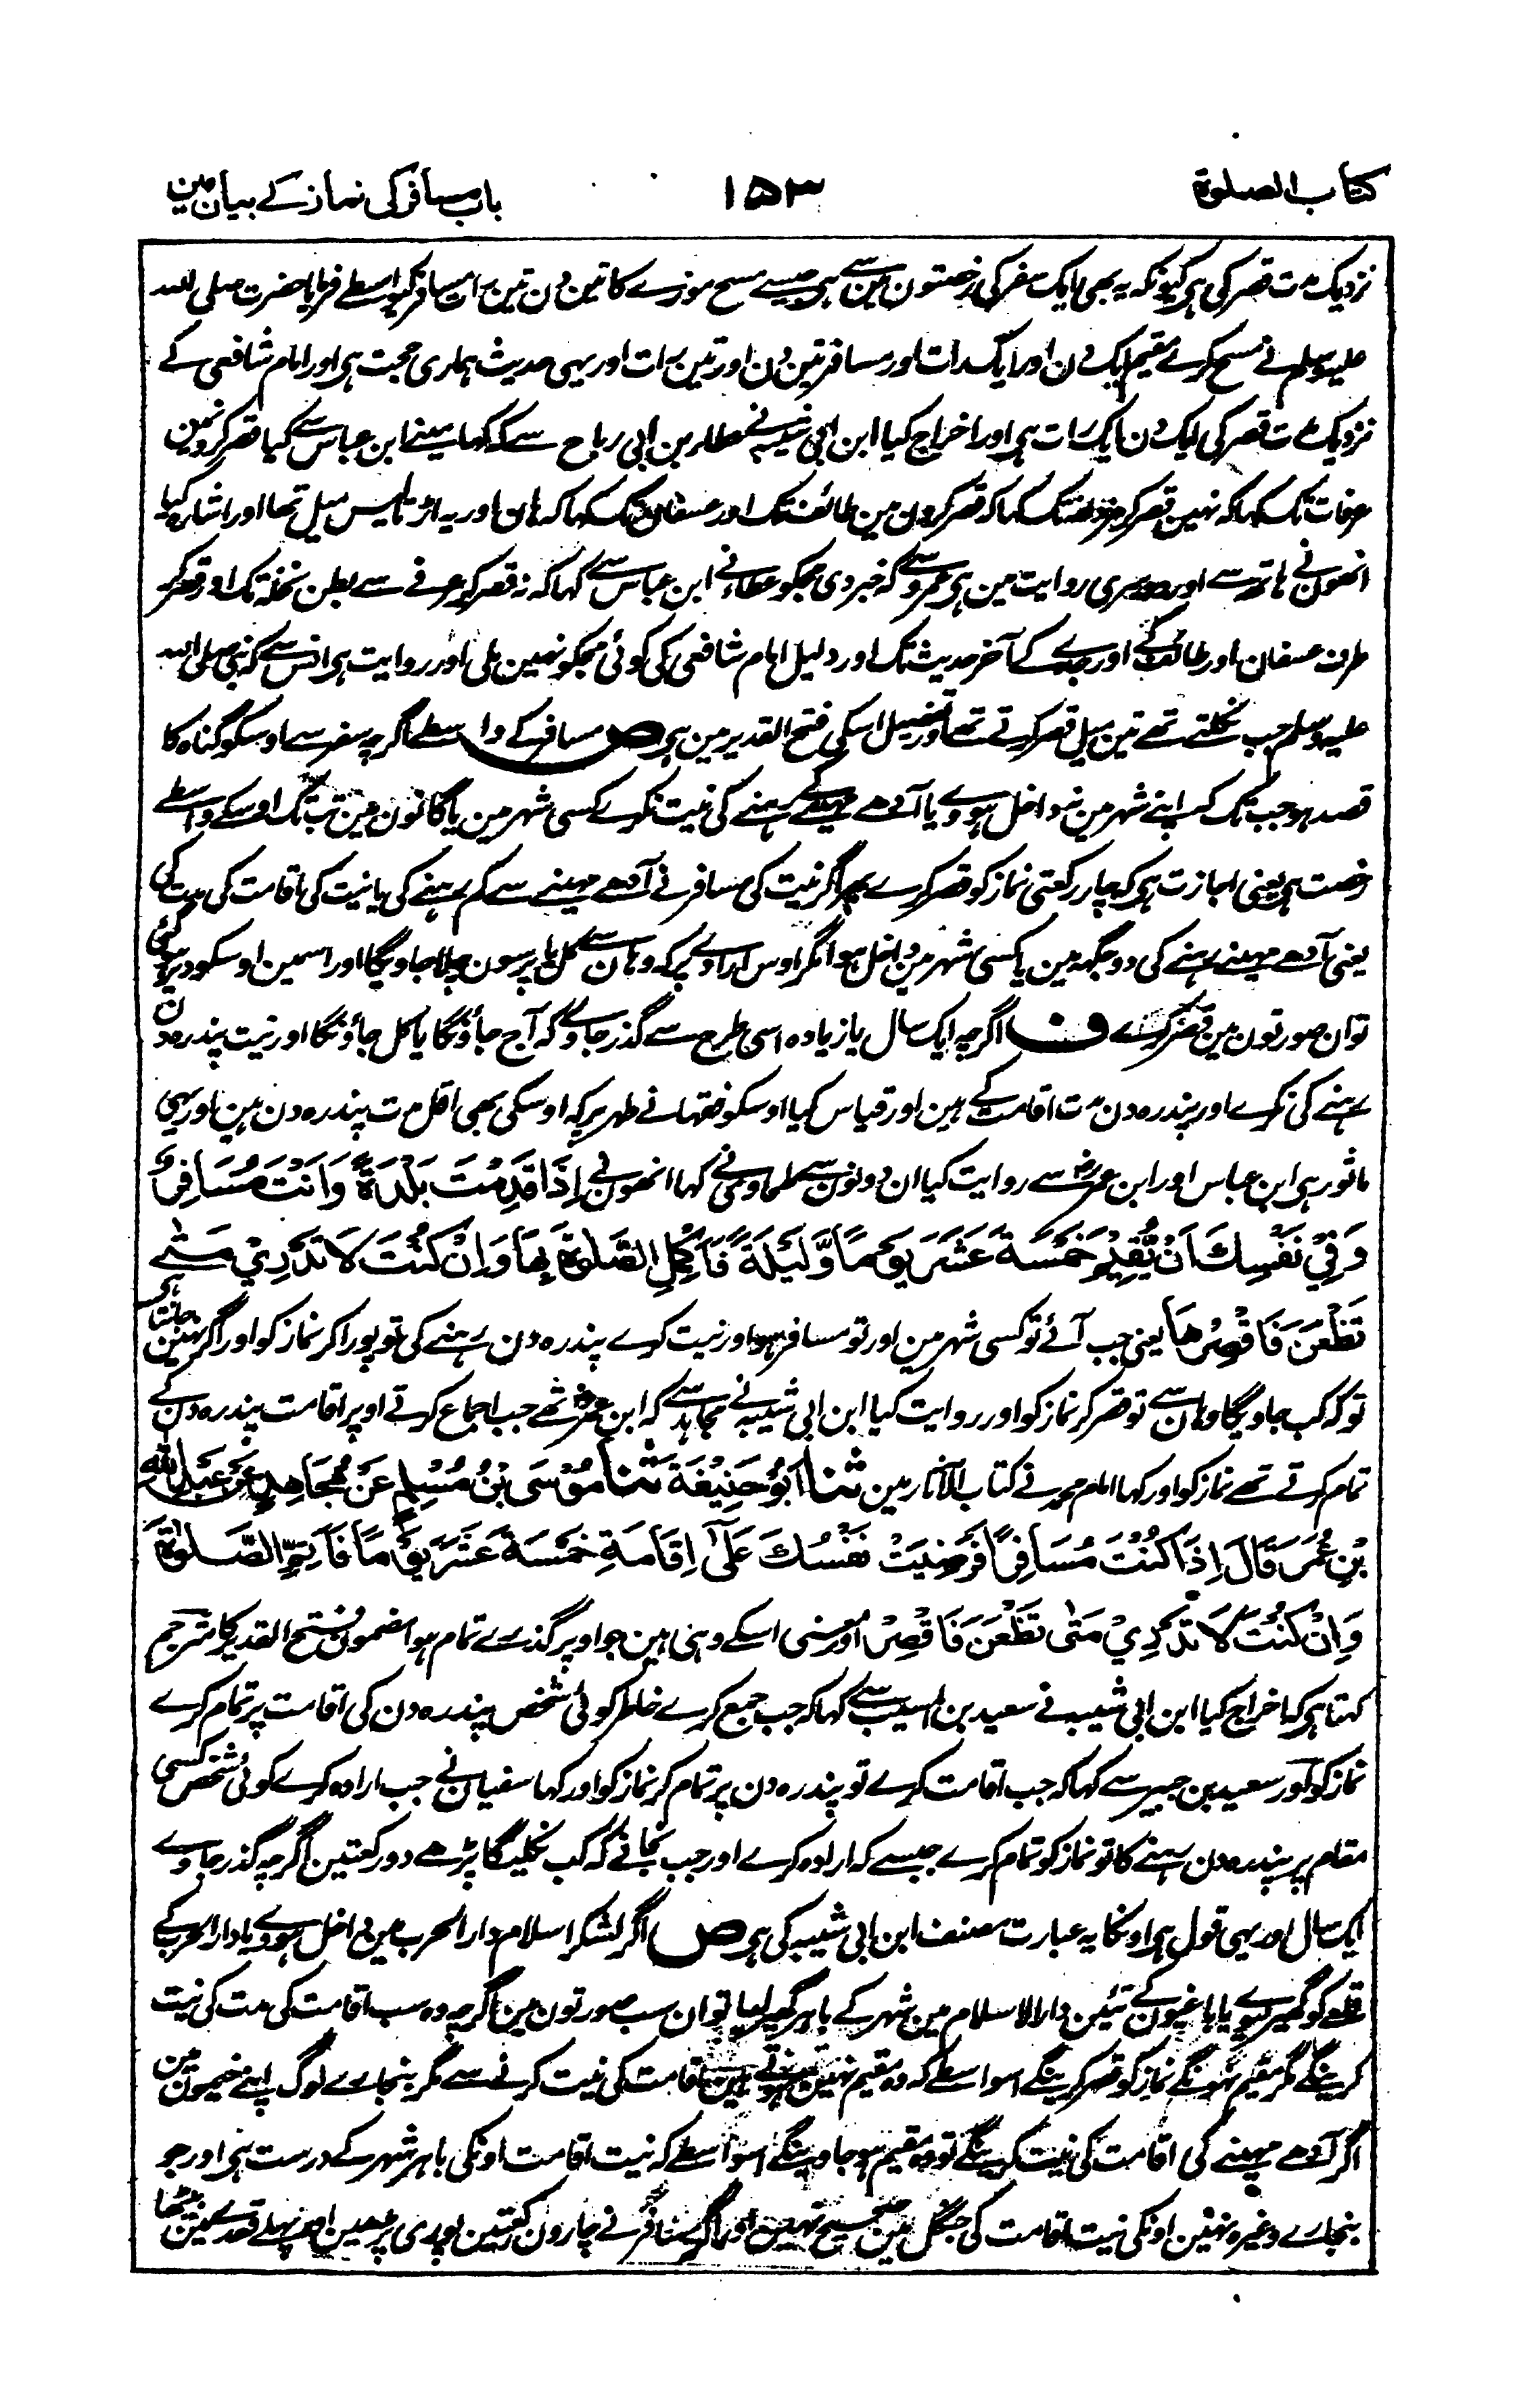 کتاب الصلوۃ ۱۵۳ باب مسافر کی نماز کے بیان مین
نزدیک مدت قصر کی ہی کیونکہ یہ بھی ایک سفر کی رخصتون مین سے ہی جیسے مسح موزے کا تین دن تین رات مسافر کیواسطے فرمایا حضرت صلی اللہ
علیہ وسلم نے مسح کرے مقیم ایک دن اور ایک رات اور مسافر تین دن اور تین رات اور یہی حدیث ہماری حجت ہی اور امام شافعی کے
نزدیک مدت قصر کی ایک دن ایک رات ہی اور اخراج کیا ابن ابی شیبہ نے عطاء بن ابی رباح سے کہ کہا مینے ابن عباس سے کیا قصر کرون مین
عرفات تک کہا کہ نہین قصر کر مزدلفہ تک کہا کہ قصر کرون مین طائف تک اور عسفان تک کہا کہ ہان اور یہ اڑتالیس میل تھا اور اشارہ کیا
انھون نے ہاتھ سے اور دوسری روایت مین ہی عمرو سے کہ خبر دی مجکو عطاء نے ابن عباس سے کہا کہ نہ قصر کر عرفے سے بطن نخلہ تک اور قصر کر
طرف عسفان اور طائف کے اور جدے کے آخر حدیث تک اور دلیل امام شافعی کی کوئی مجکو نہین ملی اور روایت ہی انس سے کہ نبی صلی اللہ
علیہ وسلم جب نکلتے تھے تین میل قصر کرتے تھے اور تفصیل اسکی فتح القدیر مین ہی ص مسافر کے واسطے اگرچہ سفر سے اوسکو گناہ کا
قصد ہو جب تک کہ اپنے شہر مین نہ داخل ہووے یا آدھے مہینے کے رہنے کی نیت نکرے کسی شہر مین یا گانون مین تب تک اوسکے واسطے
رخصت ہی یعنی اجازت ہی کہ چار رکعتی نماز کو قصر کرے پھر اگر نیت کی مسافر نے آدھے مہینے سے کم رہنے کی یا نیت کی اقامت کی مدت کی
یعنی آدھے مہینے رہنے کی دو جگہہ مین یا کسی شہر مین داخل ہوا مگر اوس ارادے پر کہ وہان سے کل یا پرسون چلا جاویگا اور اسمین اوسکو دیر ہو گئی
تو ان صورتون مین قصر کرے ف اگرچہ ایک سال یا زیادہ اسی طرح سے گذر جاوے کہ آج جاؤنگا یا کل جاؤنگا اور نیت پندرہ دن
رہنے کی نکرے اور پندرہ دن مدت اقامت کے ہین اور قیاس کیا اوسکو فقہا نے طہر پر کہ اوسکی بھی اقل مدت پندرہ دن ہین اور یہی
ماثور ہی ابن عباس اور ابن عمر سے روایت کیا ان دونون سے طحاوی نے کہا انھون نے اِذَا قَدِمْتَ بَلْدَةً وَاَنْتَ مُسَافِرٌ
وَفِيْ نَفْسِكَ اَنْ تُقِيْمَ خَمْسَةَ عَشَرَ يَوْمًا وَّلَيْلَةً فَاَكْمِلِ الصَّلٰوةَ بِهَا وَاِنْ كُنْتَ لَا تَدْرِيْ مَتٰى
تَظْعَنُ فَاقْصُرْهَا یعنی جب آئے تو کسی شہر مین اور تو مسافر ہو اور نیت کرے پندرہ دن رہنے کی تو پورا کر نماز کو اور اگر نہین جانتا ہی
تو کہ کب جاویگا وہان سے تو قصر کر نماز کو اور روایت کیا ابن ابی شیبہ نے مجاہد سے کہ ابن عمر تھے جب اجماع کرتے اوپر اقامت پندرہ دن کے
تمام کرتے تھے نماز کو اور کہا امام محمد نے کتاب الآثار مین ثَنَا اَبُوْ حَنِيْفَةَ ثَنَا مُوْسَى بْنُ مُسْلِمٍ عَنْ مُجَاهِدٍ عَنْ عَبْدِ اللّٰهِ
بْنِ عُمَرَ قَالَ اِذَا كُنْتَ مُسَافِرًا فَرَضِيَتْ نَفْسُكَ عَلٰٓى اِقَامَةِ خَمْسَةَ عَشَرَ يَوْمًا فَاَتِمِّ الصَّلٰوةَ
وَاِنْ كُنْتَ لَا تَدْرِيْ مَتٰى تَظْعَنُ فَاقْصُرْ اور معنی اسکے وہی ہین جو اوپر گذرے تمام ہوا مضمون فتح القدیر کا مترجم
کہتا ہی کہ اخراج کیا ابن ابی شیبہ نے سعید بن المسیب سے کہا کہ جب جمع کرے خاطر کوئی شخص پندرہ دن کی اقامت پر تمام کرے
نماز کو اور سعید بن جبیر سے کہا کہ جب اقامت کرے تو پندرہ دن پر تمام کر نماز کو اور کہا سفیان نے جب ارادہ کرے کوئی شخص کسی
مقام پر پندرہ دن رہنے کا تو نماز کو تمام کرے جیسے کہ ارادہ کرے اور جب نجانے کہ کب نکلیگا پڑھے دو رکعتین اگرچہ گذر جاوے
ایک سال اور یہی قول ہی اونکا یہ عبارت مصنف ابن ابی شیبہ کی ہی ص اگر لشکر اسلام دار الحرب مین داخل ہووے یا دار الحرب کے
قلعے کو گھیر لیوے یا باغیون کے تئین دار الاسلام مین شہر کے باہر گھیر لیا تو ان سب صورتون مین اگرچہ وہ سب اقامت کی مدت کی نیت
کرینگے مگر مقیم نہونگے نماز کو قصر کرینگے اسواسطے کہ وہ مقیم نہین ہوتے ہین اقامت کی نیت کرنے سے مگر بنجارے لوگ اپنے خیمون مین
اگر آدھے مہینے کی اقامت کی نیت کرینگے تو وہ مقیم ہو جاوینگے اسواسطے کہ نیت اقامت اونکی باہر شہر کے درست ہی اور جو
بنجارے وغیرہ نہین اونکی نیت اقامت کی جنگل مین صحیح نہین اور اگر مسافر نے چارون رکعتین پوری پڑھین اور پہلے قعدے مین بیٹھا